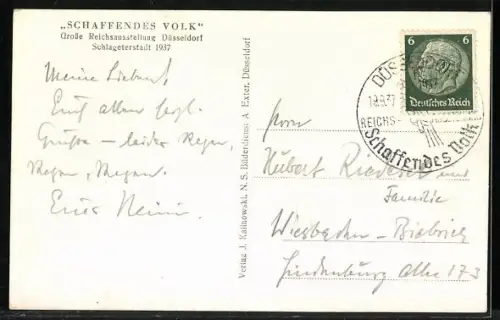 „SCHAFFENDES VOLK“
Große Reichsausstellung Düsseldorf
Schlageterstadt 1937
Meine Lieben!
Euch allen herzl.
Grüße – leider Regen,
Regen, Regen.
Euer Heini
Verlag J. Kalinowski, N. S. Bilderdienst A. Exter, Düsseldorf
6 6
Deutsches Reich
DÜSSELDORF
REICHS-
Schaffendes Volk
Herrn
Hubert
und
Familie
Wiesbaden - Biebrich
Hindenburg Allee 173